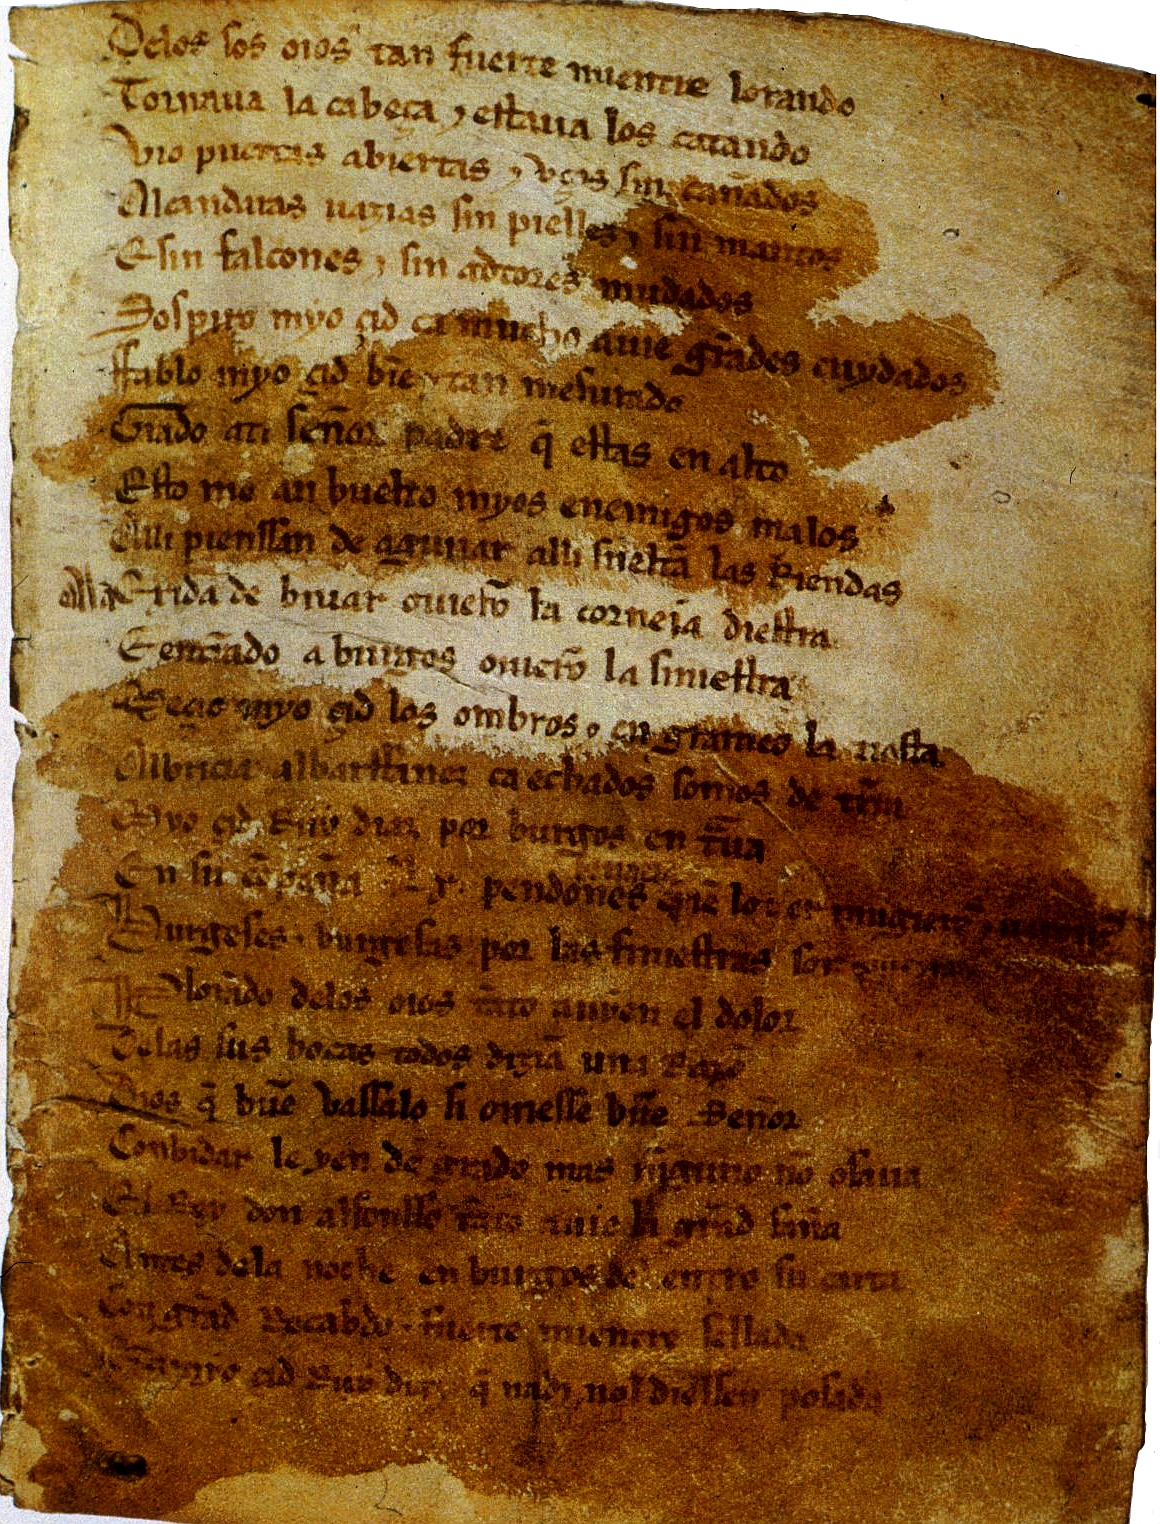 Delos sos oios tan fuerte mientre lorando
Tornaua la cabeça ⁊ estaua los catando
Vio puertas abiertas ⁊ vços sin cañados
Alcandaras uazias sin pielles ⁊ sin mantos
E sin falcones ⁊ sin adtores mudados
Sospiro myo çid ca mucho auie gr̃ades cuydados
Ffablo myo çid bie ⁊ tan mesurado
Grado ati señor padre q̃ estas en alto
Esto me an buelto myos enemigos malos
Alli pienssan de aguiiar alli sueltã las Riendas
Ala Exida de biuar ouierõ la corneia diestra
E entrãdo a burgos ouierõ la siniestra
Meçio myo çid los ombros ⁊ en grameo la tiesta
Albricia albarffanez ca echados somos de tr̃ra
Myo çid Ruy diaz por burgos en traua
En su cõpaña .Lx. pendones leuaua exiẽ lo uer mugieres ⁊ uarones
Burgeses ⁊ burgesas por las finiestras son
Plorãdo delos oios tãto auyen el dolor
Delas sus bocas todos diziã una Razõ
Dios q̃ buẽ vassalo si ouiesse buẽ Señor
Conbidar le yen de grado mas ninguno nõ osaua
El Rey don alfonsso tãto auie la grãd saña
Antes dela noche en burgos del entro su carta
Con grãd Recabdo ⁊ fuerte mientre sellada
Q̃ a myo çid Ruy diaz q̃ nadi nol diessen posada